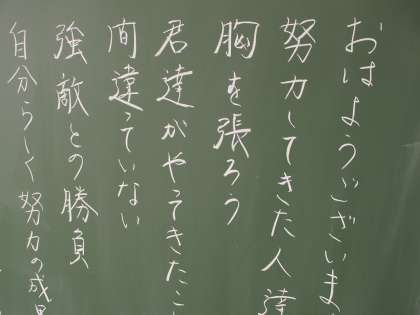 おはようございま
努力してきた人達
胸を張ろう
君達がやってきたこ
間違っていない
強敵との勝負
自分らしく努力の成果